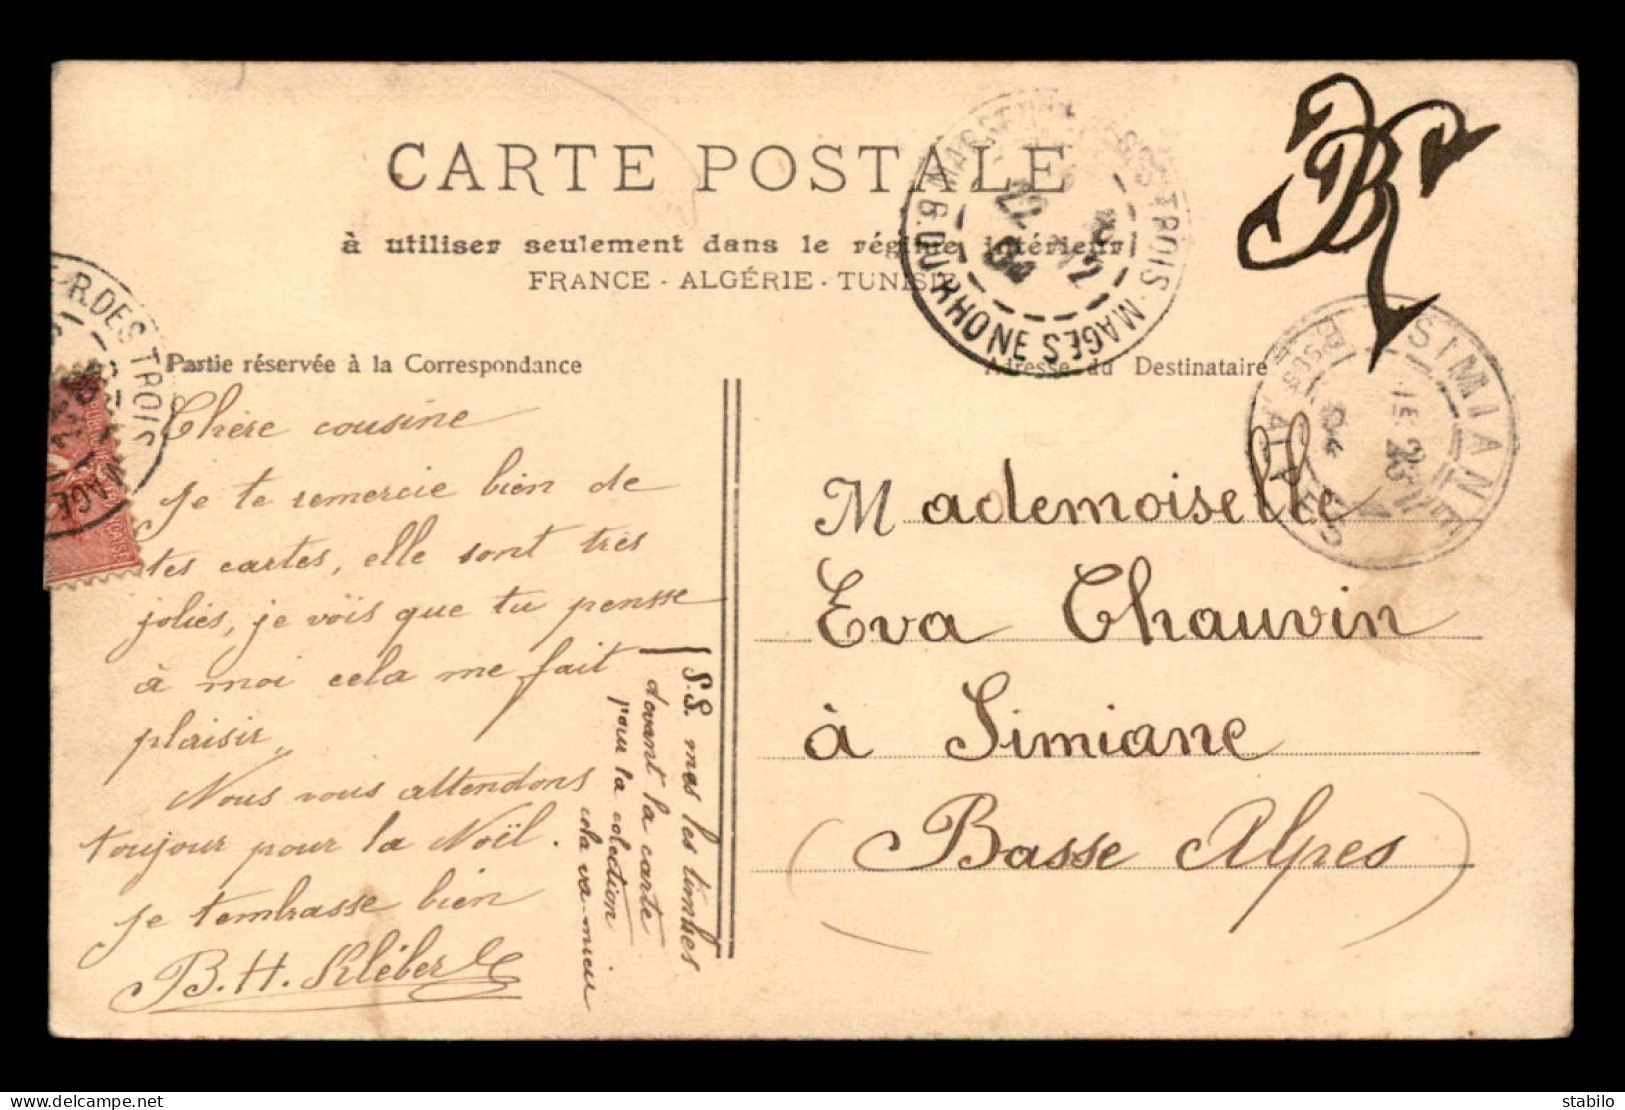 CARTE POSTALE
à utiliser seulement dans le régime intérieur
FRANCE - ALGÉRIE - TUNISIE
Partie réservée à la Correspondance
Adresse du Destinataire
Chère cousine
je te remercie bien de
tes cartes, elle sont très
jolies, je vois que tu pensse
à moi cela me fait
plaisir,
Nous vous attendons
toujour pour la Noël.
je t'embrasse bien
B. H. Kléber
P.S. mes les timbres
devant la carte
pour la colection
cela va-mieu
Mademoiselle
Eva Chauvin
à Simiane
(Basse Alpes)
MARSEILLE R. DES TROIS-MAGES
B. DU RHONE
22
12
04
SIMIANE
BSES ALPES
1E
23
04
R. DES TROIS MAGES
BR
www.delcampe.net
stabilo